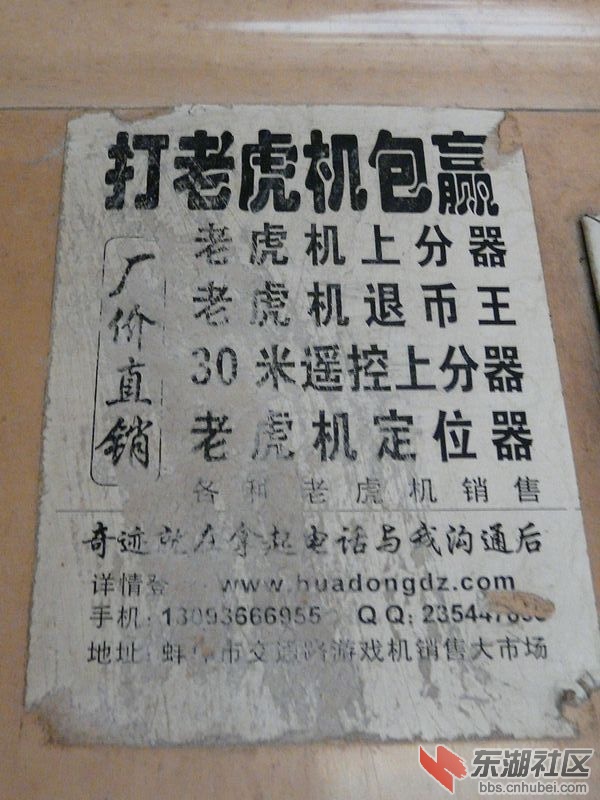 打老虎机包赢
厂价直销
老虎机上分器
老虎机退币王
30米遥控上分器
老虎机定位器
各种老虎机销售
奇迹就在拿起电话与我沟通后
详情登 www.huadongdz.com
手机:13093666955 QQ:235447
地址:蚌埠市交通路游戏机销售大市场
东湖社区
bbs.cnhubei.com